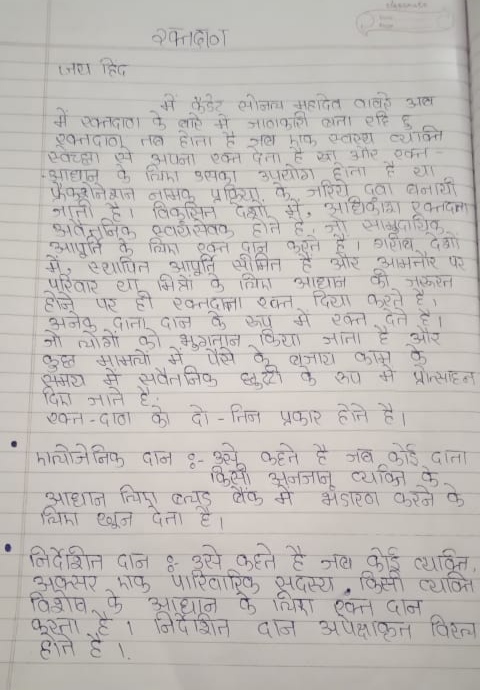 classmate
रक्तदान
जय हिंद
में कॅडेट सोनल महादेव वाबळे अब
में रक्तदान के बारे में जानकारी बता रहि हु
रक्तदान तब होता है जब एक स्वस्थ व्यक्ति
स्वेच्छा से अपना रक्त देता है या और रक्त-
आधान के लिए उसका उपयोग होता है या
फ्रेक्शेनेशन नामक प्रक्रिया के जरिये दवा बनायी
जाती है। विकसित देशों में, अधिकांश रक्तदाता
अवैतनिक स्वयंसेवक होते हैं, जो सामुदायिक
आपूर्ति के लिए रक्त दान करते है। गरीब देशों
में, स्थापित आपूर्ति सीमित है और आमतौर पर
परिवार या मित्रों के लिए आधान की जरूरत
होने पर ही रक्तदाता रक्त दिया करते है।
अनेक दाता दान के रूप में रक्त देते है।
जो लोगों को भुगतान किया जाता है और
कुछ मामलों में पैसे के बजाय काम के
समय में सवैतनिक छुट्टी के रूप में प्रोत्साहन
दिए जाते है.
रक्त-दान को दो-तिन प्रकार होते है।
• एलोजेनिक दान :- उसे कहते है जब कोई दाता
किसी अनजान व्यक्ति के
आधान लिए ब्लड बैंक में भंडारण करने के
लिए खून देता है।
• निर्देशित दान : उसे कहते है जब कोई व्यक्ति,
अक्सर एक पारिवारिक सदस्य, किसी व्यक्ति
विशेष के आधान के लिए रक्त दान
करता है। निर्देशित दान अपेक्षाकृत विरल
होते है।